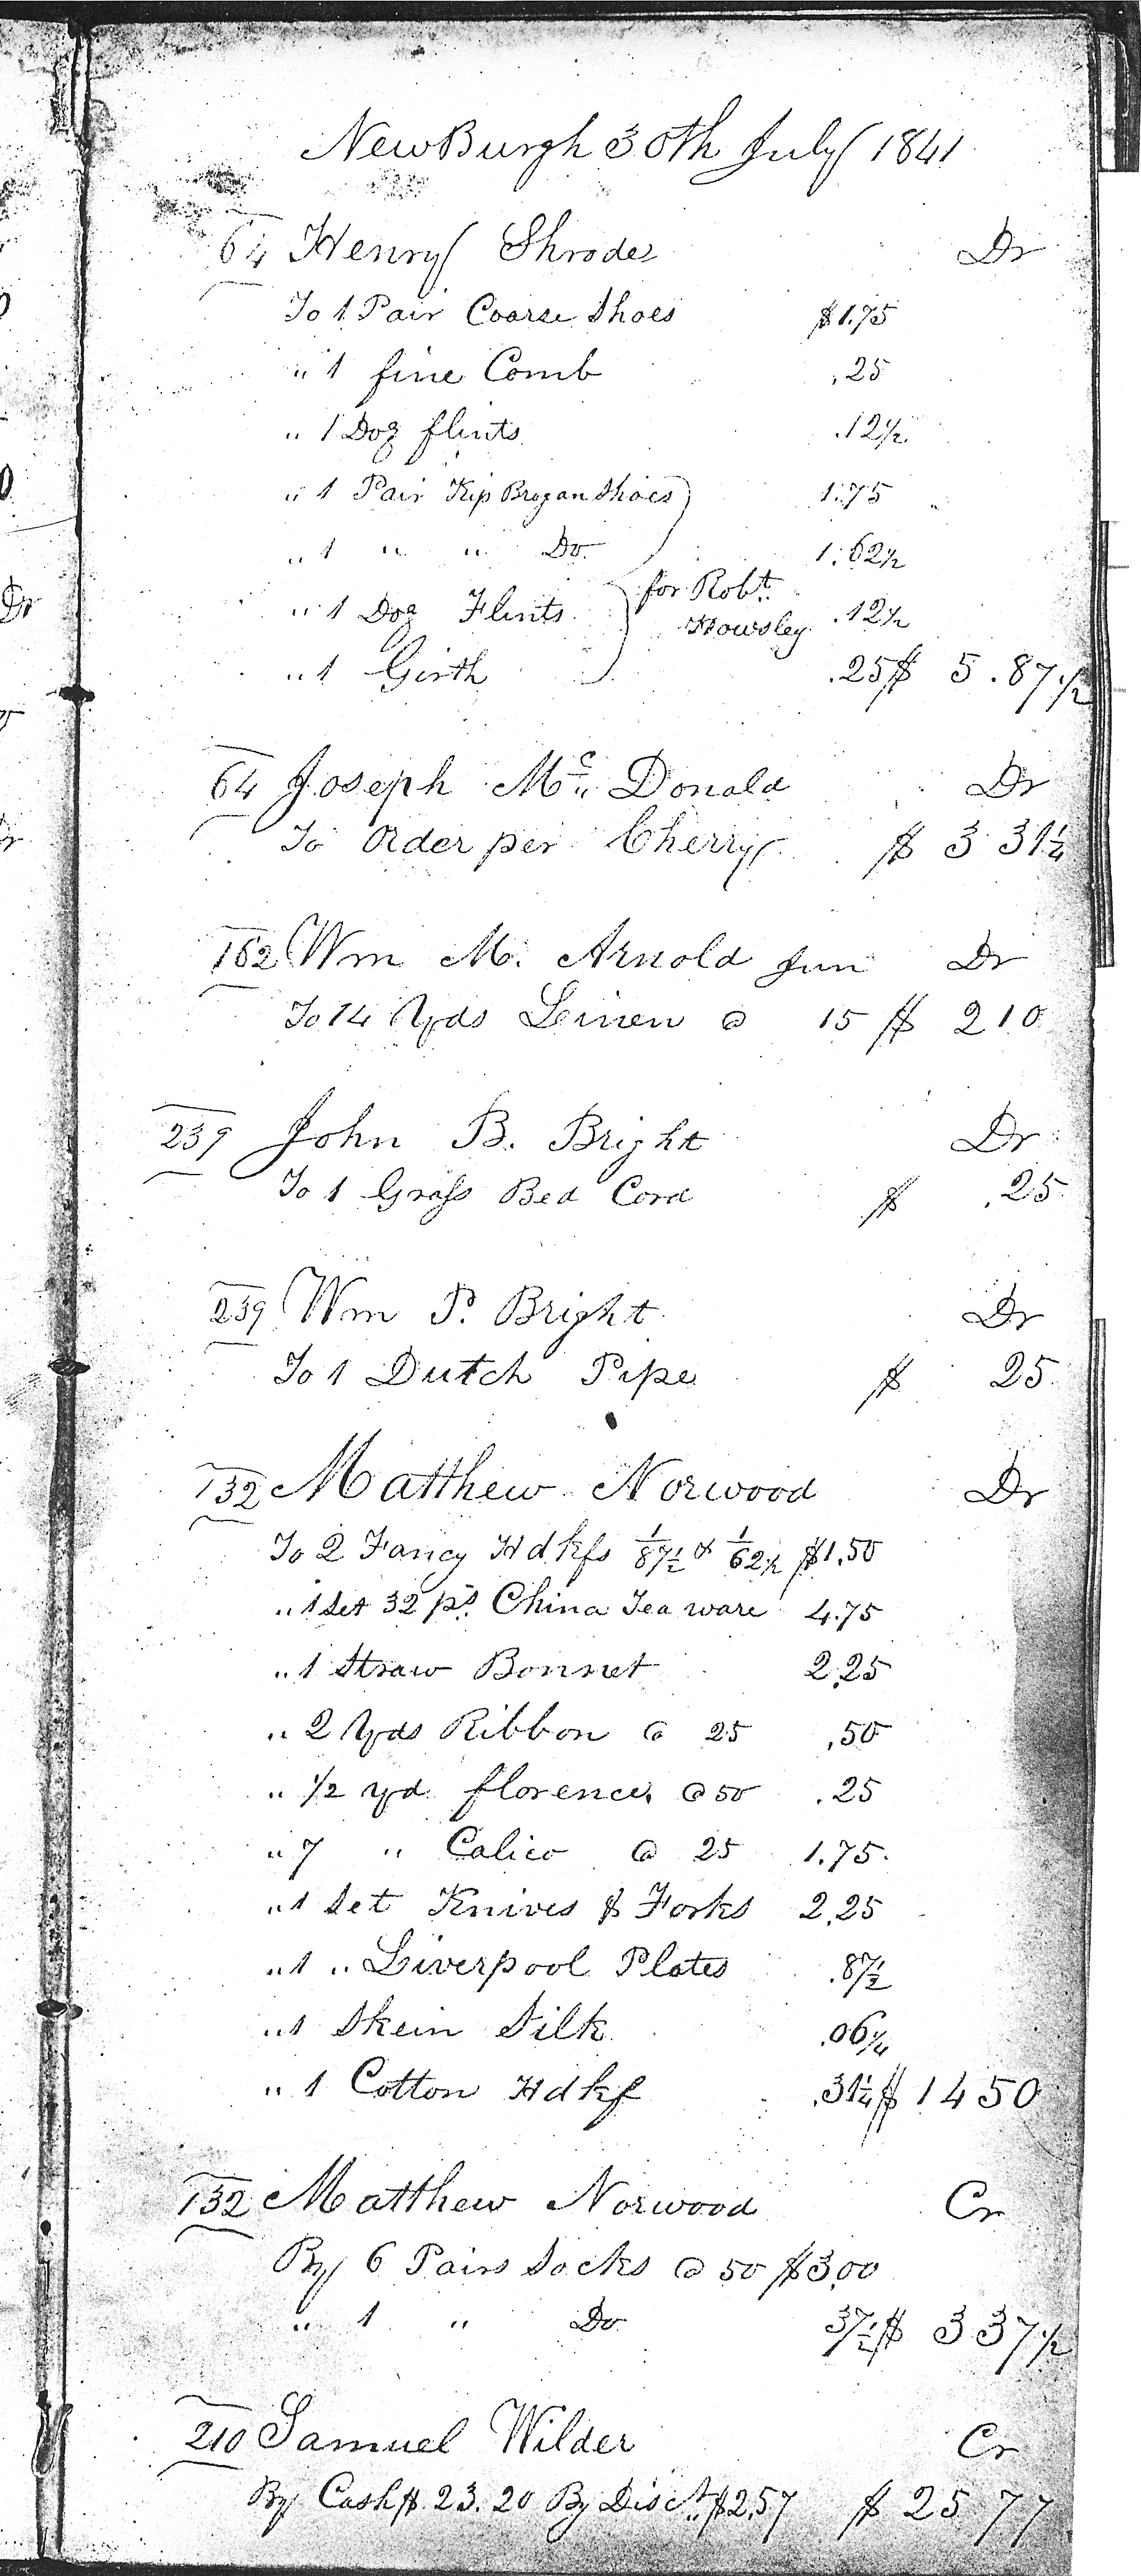 NewBurgh 30th July 1841
64 Henry Shrode Dr
To 1 Pair Coarse Shoes $1.75
" 1 fine Comb .25
" 1 Doz flints .12½
" 1 Pair Kip Brogan Shoes 1.75
" 1 " " Do. 1.62½
" 1 Doz Flints for Robt. Howsley .12½
" 1 Girth .25 $ 5.87½
64 Joseph Mc Donald Dr
To Order per Cherry $ 3 31¼
162 Wm M. Arnold Jun Dr
To 14 Yds Linen @ 15 $ 2 10
239 John B. Bright Dr
To 1 Grass Bed Cord $ .25
239 Wm P. Bright Dr
To 1 Dutch Pipe $ 25
132 Matthew Norwood Dr
To 2 Fancy Hdkfs 1/87½ & 1/62½ $1.50
" 1 Set 32 ps. China Tea ware 4.75
" 1 Straw Bonnet 2.25
" 2 Yds Ribbon @ 25 .50
" ½ yd florence @ 50 .25
" 7 " Calico @ 25 1.75
" 1 Set Knives & Forks 2.25
" 1 " Liverpool Plates .87½
" 1 Skein Silk .06¼
" 1 Cotton Hdkf .31¼ $ 14 50
132 Matthew Norwood Cr
By 6 Pairs Socks @ 50 $3.00
" 1 " Do 37½ $ 3 37½
210 Samuel Wilder Cr
By Cash $ 23.20 By Disct. $2.57 $ 25 77